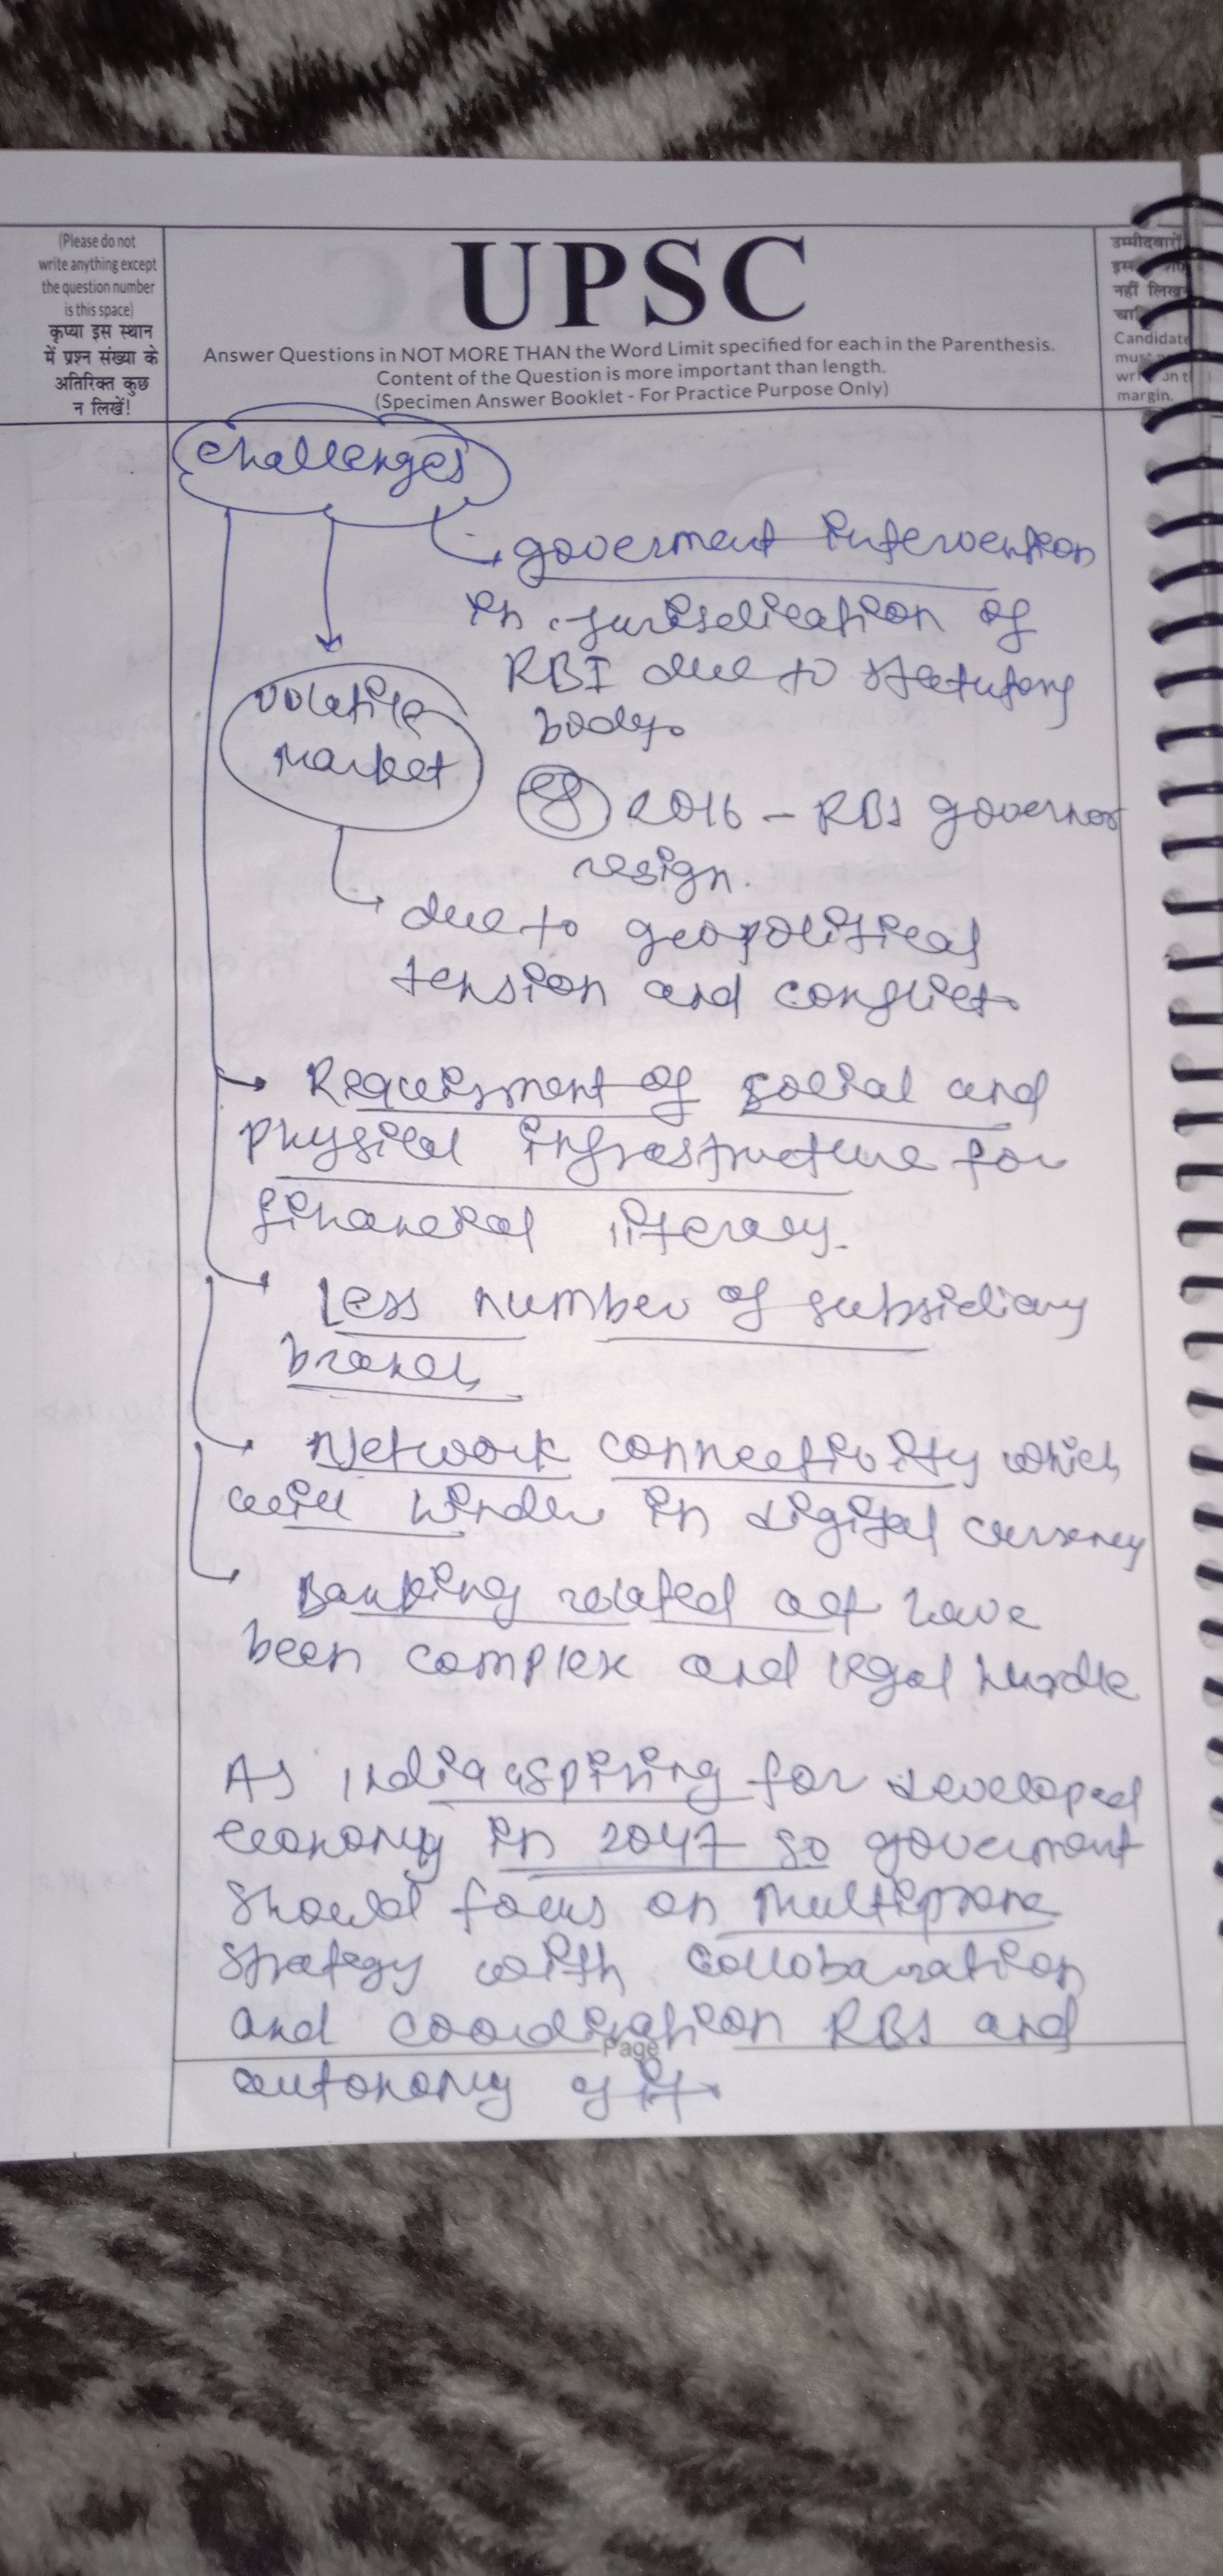 (Please do not
write anything except
the question number
is this space)
कृप्या इस स्थान
में प्रश्न संख्या के
अतिरिक्त कुछ
न लिखें!
UPSC
Answer Questions in NOT MORE THAN the Word Limit specified for each in the Parenthesis.
Content of the Question is more important than length.
(Specimen Answer Booklet - For Practice Purpose Only)
उम्मीदवारों
इस
नहीं लिख
Candidate
must
margin.
challenges
goverment intervention
in jurisdication of
RBI due to statutory
body.
eg 2016 - RBI governor
resign.
volatile
market
due to geopolitical
tension and conflict
Requirement of social and
physical infrastructure for
financial literacy.
Less number of subsidiary
branch
Network connectivity which
will hinder in digital currency
Banking related act have
been complex and legal hurdle
As India aspiring for developed
economy in 2047 so goverment
should focus on multiprone
strategy with collobaration
and coordination RBI and
Page
autonomy of it.